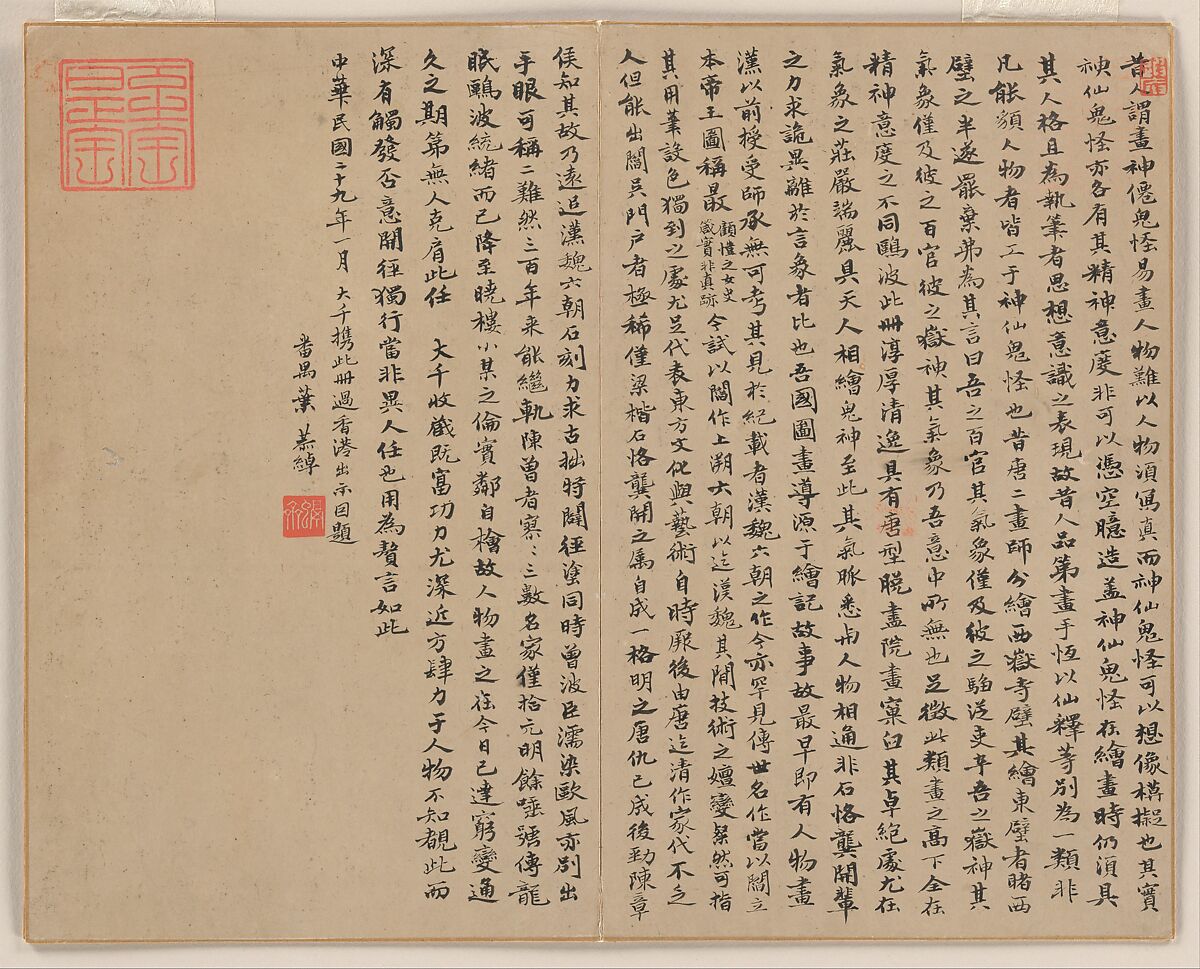 昔人謂畫神僊鬼怪易畫人物難以人物須寫真而神仙鬼怪可以想像構擬也其實
神仙鬼怪亦各有其精神意度非可以憑空臆造蓋神仙鬼怪在繪畫時仍須具
其人格且為執筆者思想意識之表現故昔人品第畫手恆以仙釋等別為一類非
凡能貌人物者皆工于神仙鬼怪也昔唐二畫師分繪西嶽寺壁其繪東壁者睹西
壁之半遂罷棄弗為其言曰吾之百官其氣象僅及彼之騶從吏卒吾之嶽神其
氣象僅及彼之百官彼之嶽神其氣象乃吾意中所無也足徵此類畫之高下全在
精神意度之不同鷗波此冊淳厚清逸具有唐型脫盡院畫窠臼其卓絕處尤在
氣象之莊嚴端麗具天人相繪鬼神至此其氣脈悉与人物相通非石恪龔開輩
之力求詭異離於言象者比也吾國圖畫導源于繪記故事故最早即有人物畫
漢以前授受師承無可考其見於紀載者漢魏六朝之作今亦罕見傳世名作當以閻立
本帝王圖稱最顧愷之女史箴實非真跡今試以閻作上溯六朝以迄漢魏其間技術之嬗變粲然可指
其用筆設色獨到之處尤足代表東方文化與藝術自時厥後由唐迄清作家代不乏
人但能出閻吳門戶者極稀僅梁楷石恪龔開之屬自成一格明之唐仇已成後勁陳章
侯知其故乃遠追漢魏六朝石刻力求古拙特闢徑塗同時曾波臣濡染歐風亦別出
手眼可稱二難然三百年來能繼軌陳曾者寥〻三數名家僅拾元明餘唾強傳龍
眠鷗波統緒而已降至曉樓小某之倫實鄰自檜故人物畫之在今日已達窮變通
久之期第無人克肩此任 大千收藏既富功力尤深近方肆力于人物不知覩此而
深有觸發否意開徑獨行當非異人任也用為贅言如此
中華民國二十九年一月 大千攜此冊過香港出示因題
番禺葉恭綽